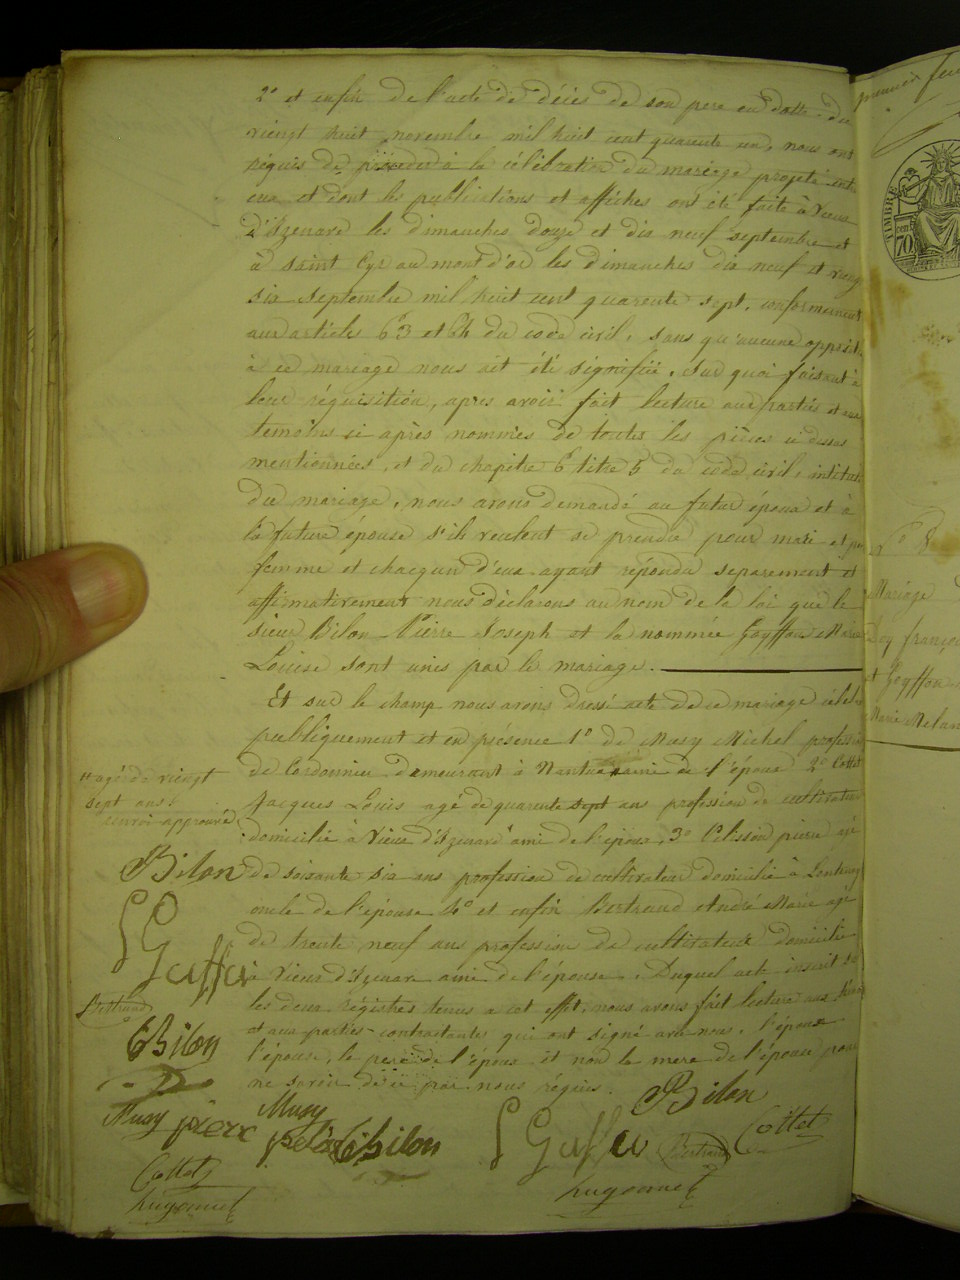 2° et enfin de l'acte de décès de son pere en datte du
viengt huit novembre mil huit cent quarente un, nous ont
réquis de procéder à la célébration du mariage projeté entre
eux et dont les publications et affiches ont été faite à Vieux
D'Izenave les dimanches douze et dix neuf septembre et
à saint Cyr au mont d'or les dimanches dix neuf et vieng
six septembre mil huit cent quarente sept, conformement
aux articles 63 et 64 du code civil, sans qu'aucune opposit
à ce mariage nous ait été signifiée. Sur quoi faisant à
leur réquisition, apres avoir fait lecture aux parties et aux
temoins ci après nommés de toutes les pièces ci dessus
mentionnées, et du chapitre 6 titre 5 du code civil, intitulé
du mariage, nous avons demandé au futur époux et à
la future épouse s'ils veulent se prendre pour mari et pr
femme et chaqun d'eux ayant répondu separement et
affirmativement nous déclarons au nom de la loi que le
sieur Bilon Pierre Joseph et la nommée Goyffon Marie
Louise sont unis par le mariage.
Et sur le champ nous avons dressé acte de ce mariage célébré
publiquement et en présence 1° de Musy Michel profession
de Cordonnier demeurant à Nantua ami de l'époux 2° Cottet
Jacques Louis agé de quarente sept ans profession de cultivateur
domicilié à Vieux d'Izenave ami de l'époux, 3° Pelisson pierre agé
de soixante six ans profession de cultivateur domicilié à
oncle de l'épouse 4° et enfin Bertrand André Marie agé
de trente neuf ans profession de cultivateur domicilié
à Vieux d'Izenave ami de l'épouse. Duquel acte inscrit sur
les deux régistres tenus a cet effet, nous avons fait lecture aux témoins
et aux parties contractantes qui ont signé avec nous, l'époux
l'épouse, le pere de l'époux et non la mere de l'épouse pour
ne savoir de ce par nous réquis.
agé de viengt
sept ans
renvoi approuvé
Bilon
Goiffon
Bertrand
Bilon
Musy pierre Musy
Bilon
Goiffon
Bilon
Bertrand
Cottet
Cottet
hugonnet
hugonnet
premier
TIMBRE
70
N° 8
Mariage
Roy françois
et Goyffon
Marie Melan